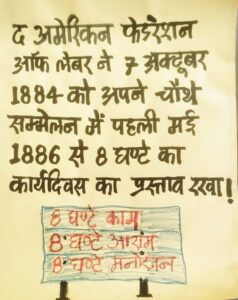 द अमेरिकन फेडरेशन
ऑफ लेबर ने 7 अक्टूबर
1884 को अपने चौथे
सम्मेलन में पहली मई
1886 से 8 घण्टे का
कार्यदिवस का प्रस्ताव रखा!
8 घण्टे काम
8 घण्टे आराम
8 घण्टे मनोरंजन